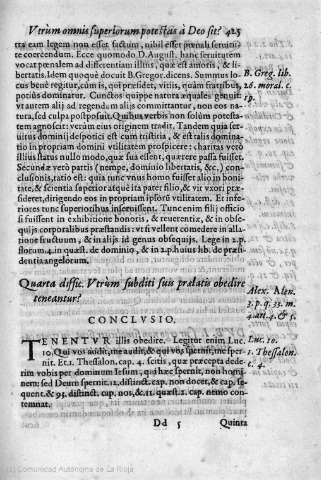 Vtrùm omnis superiorum potestas à Deo sit? 425
tra eam legem non esset factum, nihil esset pœnali seruitu-
te coercendum. Ecce quomodo D. August. hanc seruitutem
vocat pœnalem ad differentiam illius, quæ est amoris, & li-
bertatis. Idem quoquè docuit B. Gregor. dicens. Summus lo-
cus benè regitur, cùm is, qui præsidet, vitijs, quàm fratribus,
potiùs dominatur. Cunctos quippe natura æquales genuit:
vt autem alij ad regendum alijs committantur, non eos na-
tura, sed culpa postposuit. Quibus verbis non solùm potesta-
tem agnoscit: verùm eius originem tradit. Tandem quia ser-
uitus domini despotici est cum tristitia, & est talis domina-
tio in propriam domini vtilitatem prospicere: charitas verò
illius status nullo modo, quæ sua essent, quærere passa fuisset.
Secundæ verò partis (nempe, dominio libertatis, &c.) con-
clusionis, ratio est: quia tunc vnus homo fuisset alio in boni-
tate, & scientia superior atquè ita pater filio, & vir vxori præ-
sideret, dirigendo eos in propriam ipsorũ vtilitatem. Et infe-
riores tunc superioribus inseruissent. Tunc enim filij officio-
si fuissent in exhibitione honoris, & reuerentiæ, & in obse-
quijs corporalibus præstandis: vt si vellent comedere in alla-
tione fructuum, & in alijs id genus obsequijs. Lege in 2. p.
lib. 4. in quæst. de dominio, & in 2. p. huius lib. de præsi-
dentia angelorum.
B. Greg. lib.
26. moral. c.
Quarta diffic. Vtrùm subditi suis prælatis obedire
teneantur?
Alex. Alen.
3. p. q. 33. m.
4. art. 4. & 5.
CONCLVSIO.
TENENTVR illis obedire. Legitur enim Luc.
10. Qui vos audit, me audit, & qui vos spernit, me sper-
nit. Et 1. Thessalon. cap. 4. scitis, quæ præcepta dede-
rim vobis per dominum Iesum, qui hæc spernit, non homi-
nem: sed Deum spernit. 12. distinct. cap. non decet, & cap. se-
quent. & 93. distinct. cap. nos, & 11. quæst. 3. cap. nemo con-
temnat.
Luc. 10.
1. Thessalon.
c. 4.
Dd 5 Quinta
(c) Comunidad Autónoma de La Rioja